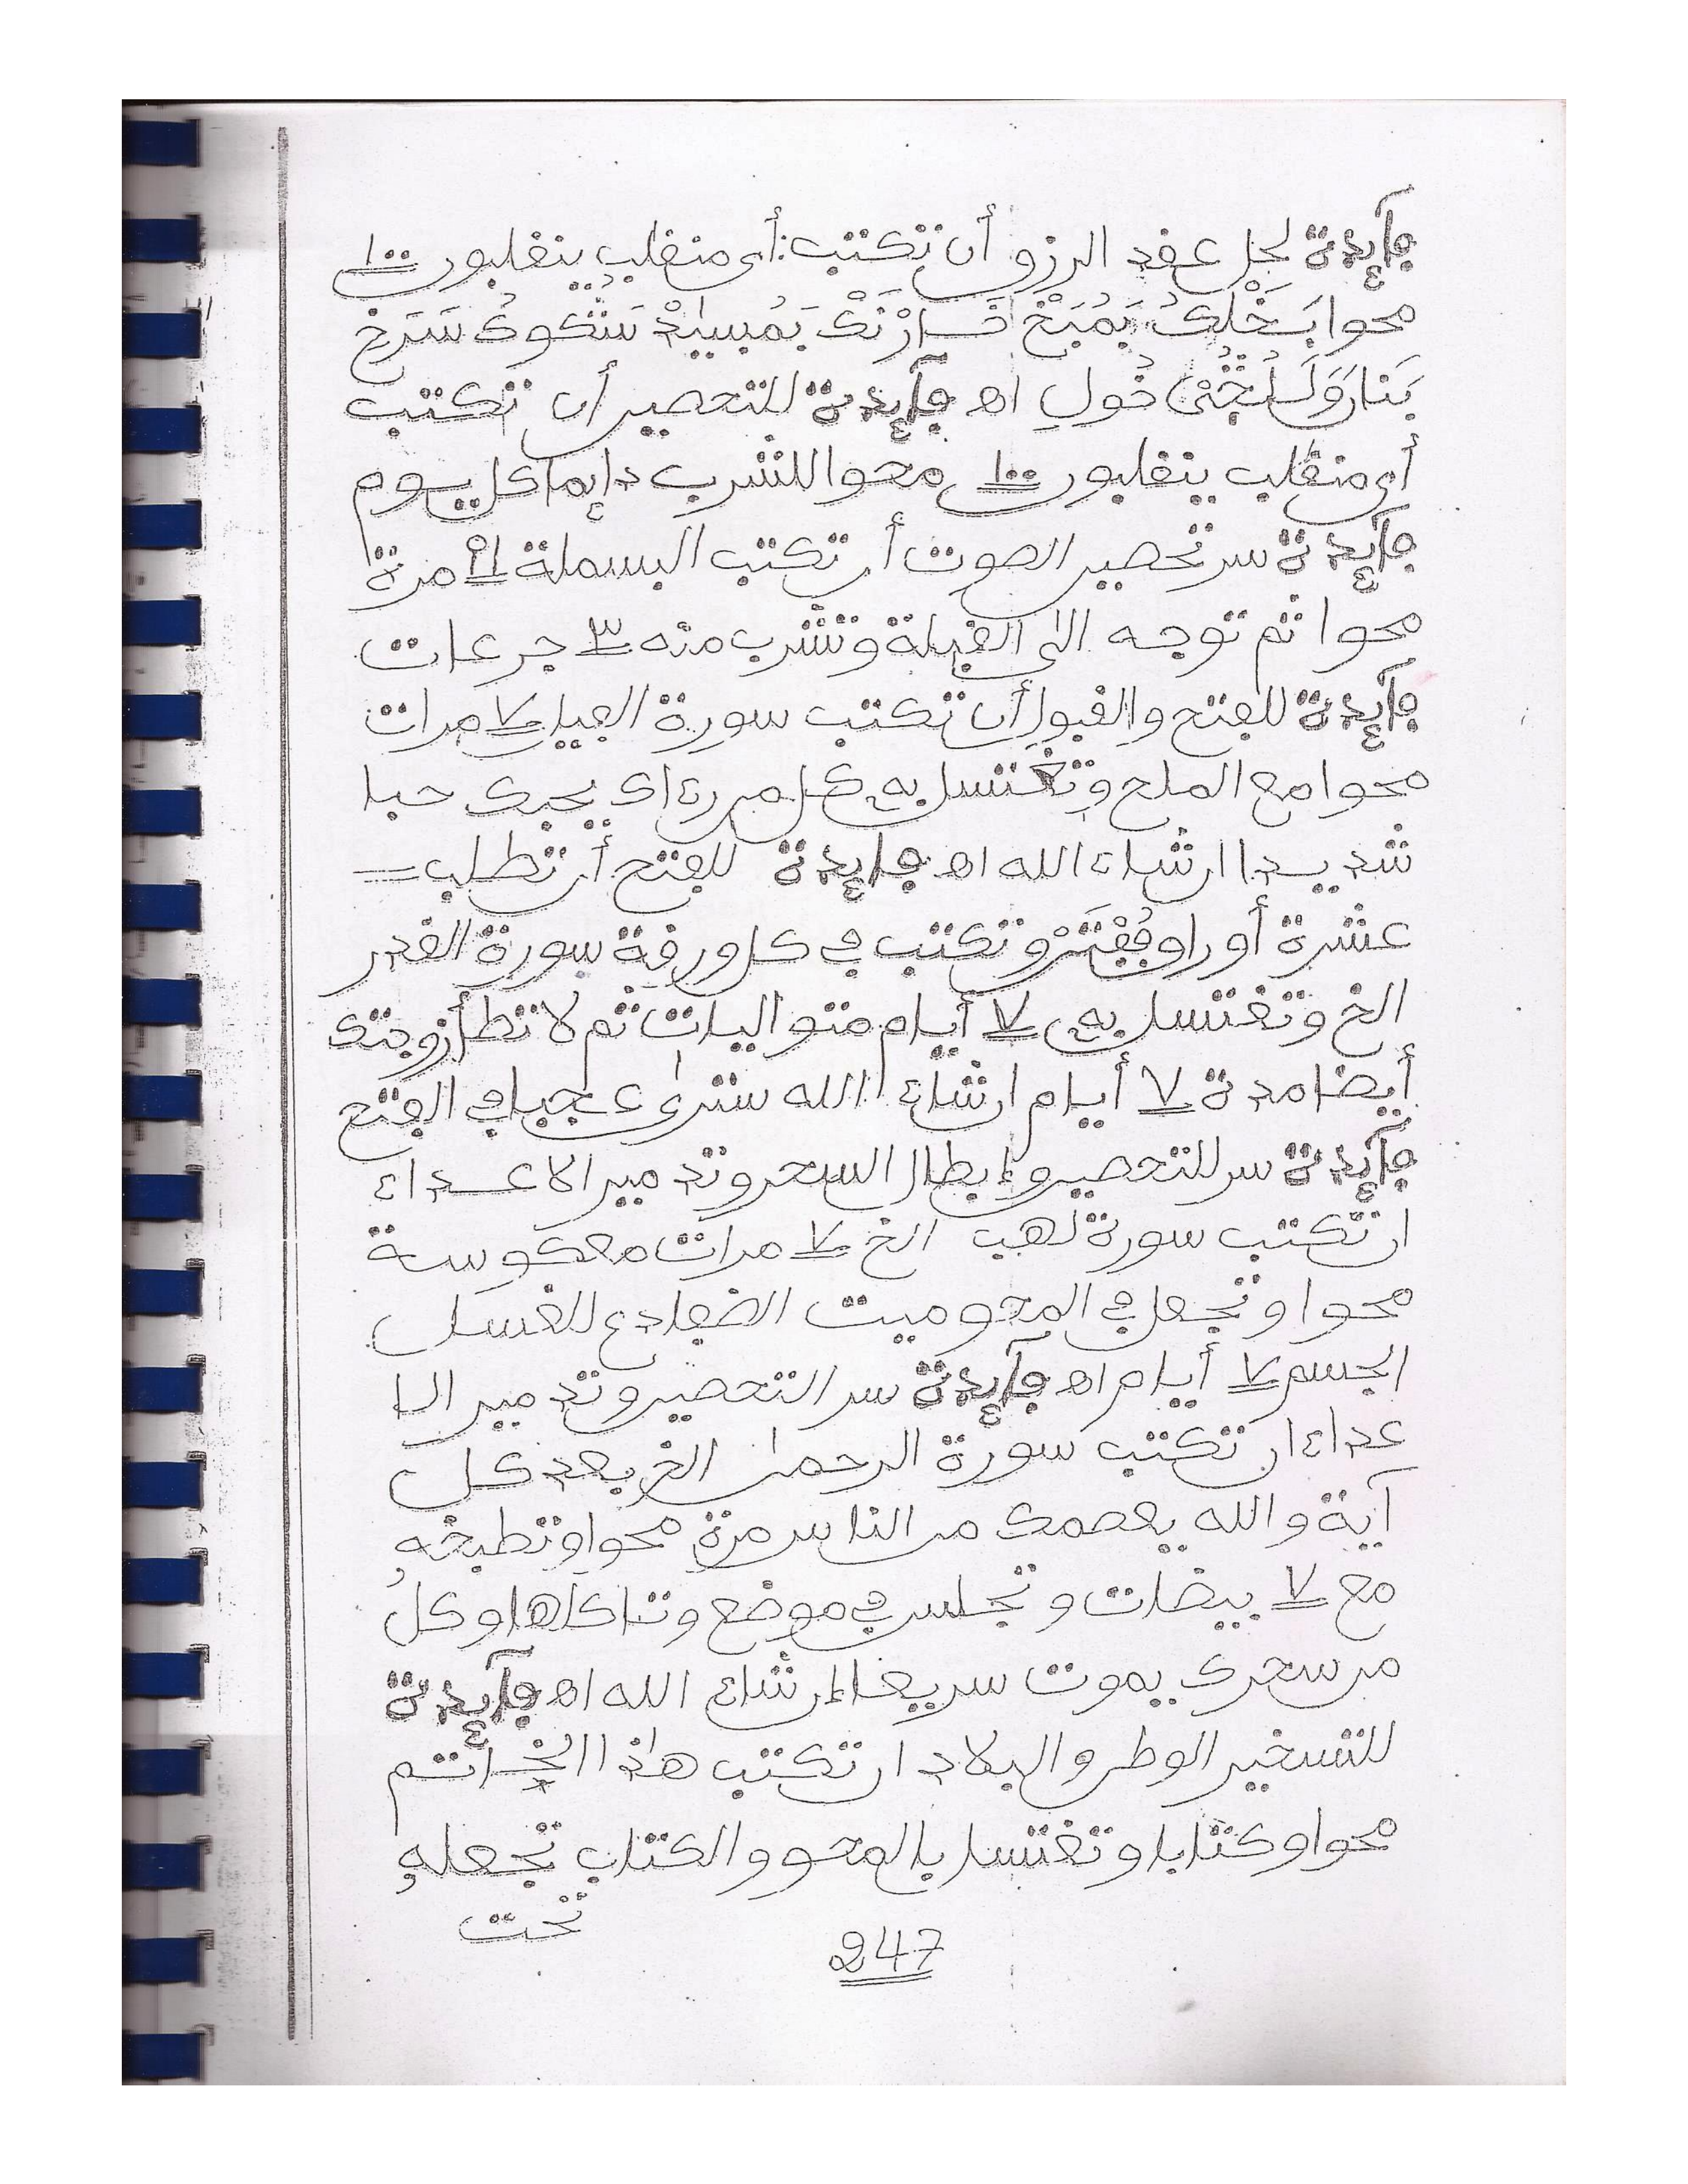 فآيدة لحل عقد الرزق أن تكتب: أى منقلب ينقلبون ١٠٠
محوا بَخْلِكُ
فآيدة للتحصين أن تكتب
أى منقلب ينقلبون ١٠٠ محوا للشرب دايما كل يوم
فآيدة سر تحصين الصوت أن تكتب البسملة ١٩ مرة
محوا ثم توجه الى القبلة وتشرب منه ٣ جرعات
فآيدة للفتح والقبول أن تكتب سورة الفيل ٧ مرات
محوا مع الملح وتغتسل به كل من رءاك يحبك حبا
شديدا ان شاء الله اه فايدة للفتح أن تطلب
عشرة أوراق وتكتب في كل ورقة سورة القدر
الخ وتغتسل به ٧ أيام متواليات ثم لا تطأ زوجتك
أيضا مدة ٧ أيام ان شاء الله سترى عجبا في الفتح
فآيدة سر للتحصين وإبطال السحر وتدمير الاعداء
ان تكتب سورة لهب الخ ٧ مرات معكوسة
محوا وتجعل في المحو ميت الضفادع للغسل
الجسم ٧ أيام اه فآيدة سر التحصين وتدمير الا
عداء ان تكتب سورة الرحمن الخ بعد كل
آية والله يعصمك من الناس مرة محوا وتطبخه
مع ٧ بيضات وتجلس في موضع وتاكلها وكل
من سحرك يموت سريعا إن شاء الله اه فآيدة
للتسخير الوطن والبلاد ان تكتب هاذا الخاتم
محوا وكتابا وتغتسل بالمحو والكتاب تجعله
تحت
247